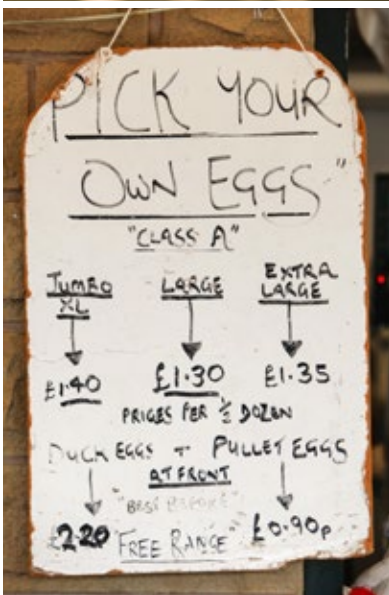 PICK YOUR
OWN EGGS"
"CLASS A"
JUMBO XL LARGE EXTRA LARGE
£1.40 £1.30 £1.35
PRICES PER ½ DOZEN
DUCK EGGS + PULLET EGGS
AT FRONT
"BEST BEFORE"
£2.20 "FREE RANGE" £0.90p